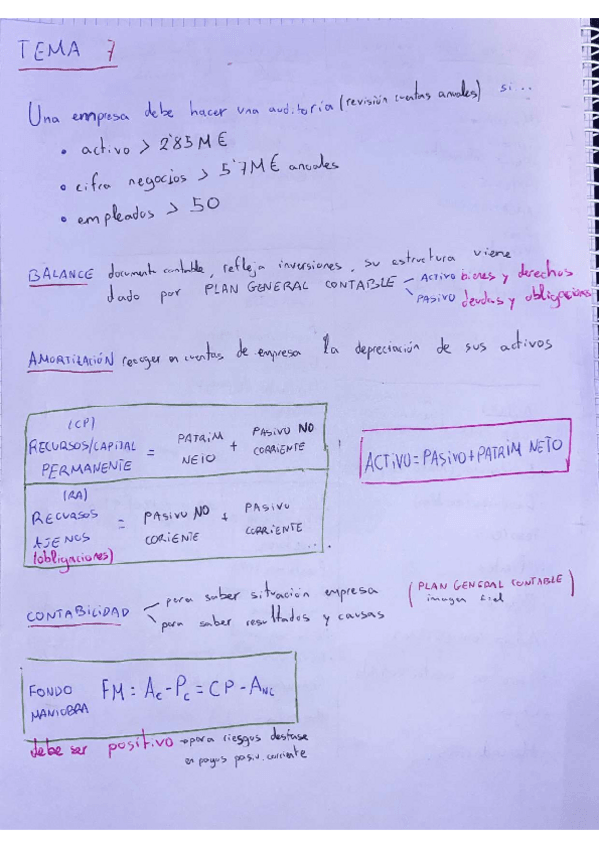 TEMA 7
Una empresa debe hacer una auditoría (revisión cuentas anuales) si...
• activo > 2'85 M €
• cifra negocios > 5'7 M € anuales
• empleados > 50
BALANCE documento contable, refleja inversiones, su estructura viene
dado por PLAN GENERAL CONTABLE
ACTIVO bienes y derechos
PASIVO deudas y obligaciones
AMORTIZACIÓN recoger en cuentas de empresa la depreciación de sus activos
(CP)
RECURSOS/CAPITAL PERMANENTE = PATRIM NETO + PASIVO NO CORRIENTE
ACTIVO = PASIVO + PATRIM NETO
(RA)
RECURSOS AJENOS = PASIVO NO CORIENTE + PASIVO CORRIENTE
(obligaciones)
CONTABILIDAD
para saber situación empresa
para saber resultados y causas
(PLAN GENERAL CONTABLE)
imagen fiel
FONDO MANIOBRA FM = Ac - Pc = CP - ANC
debe ser positivo → para riesgos desfase
en pagos pasiv. corriente